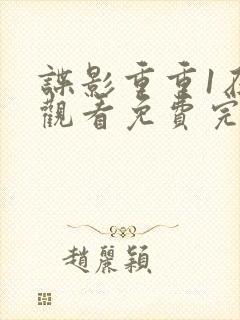 諜影重重1在
觀看免費完
趙麗穎